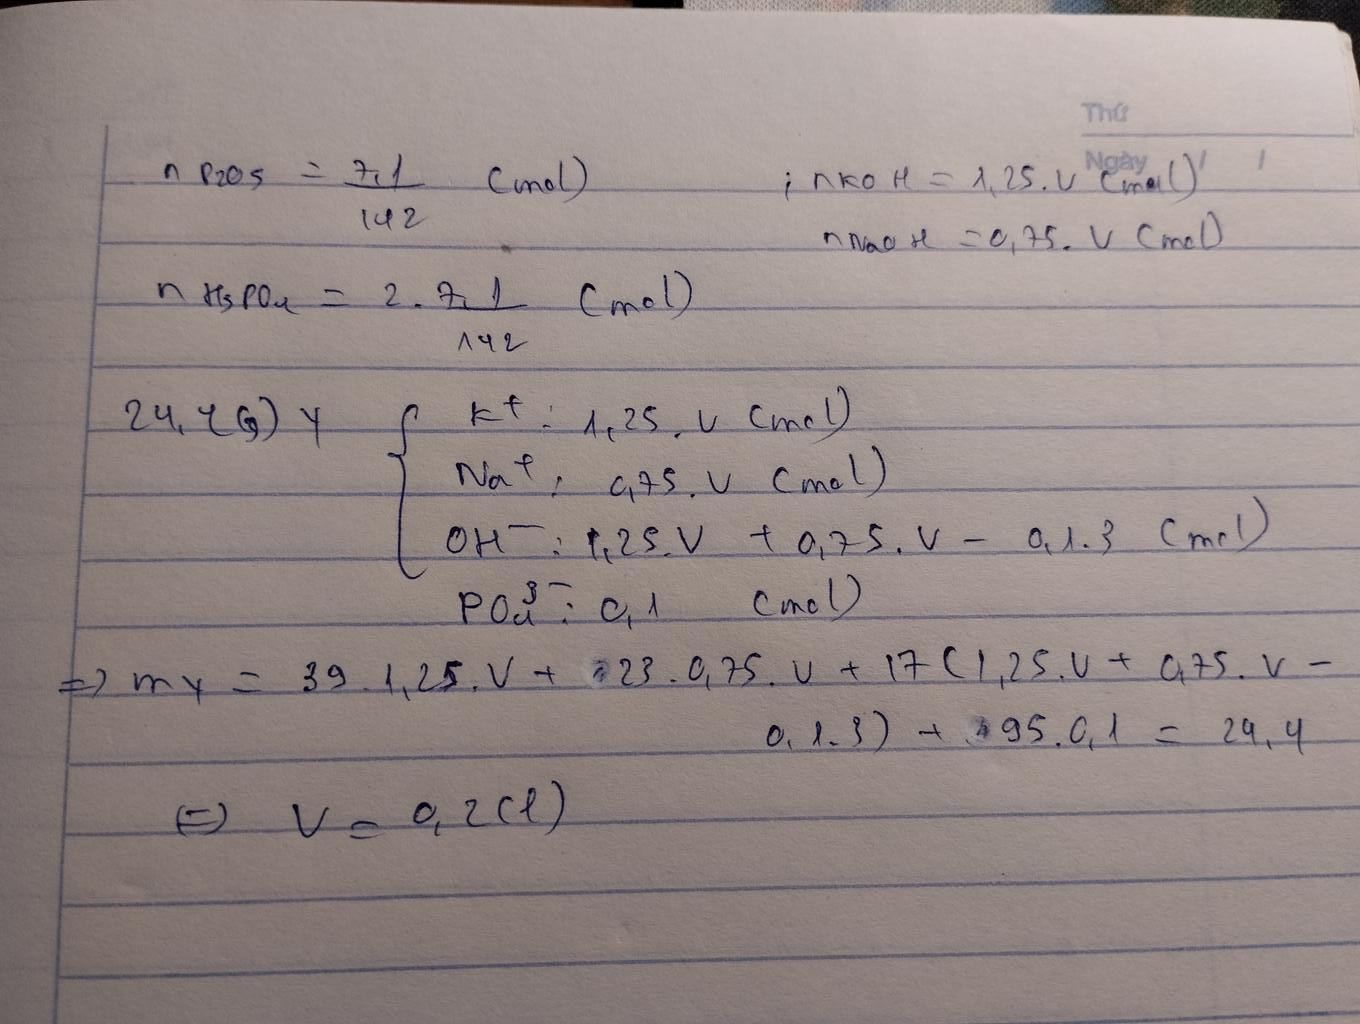 Thứ
Ngày / /
n P2O5 = 7,1/142 (mol) ; nKOH = 1,25.V (mol)
nNaOH = 0,75.V (mol)
n H3PO4 = 2.7,1/142 (mol)
24,4(g) Y { K+ : 1,25.V (mol)
Na+ : 0,75.V (mol)
OH- : 1,25.V + 0,75.V - 0,1.3 (mol)
PO4 3- : 0,1 (mol)
=> mY = 39.1,25.V + 23.0,75.V + 17(1,25.V + 0,75.V -
0,1.3) + 95.0,1 = 24,4
(=) V = 0,2(l)